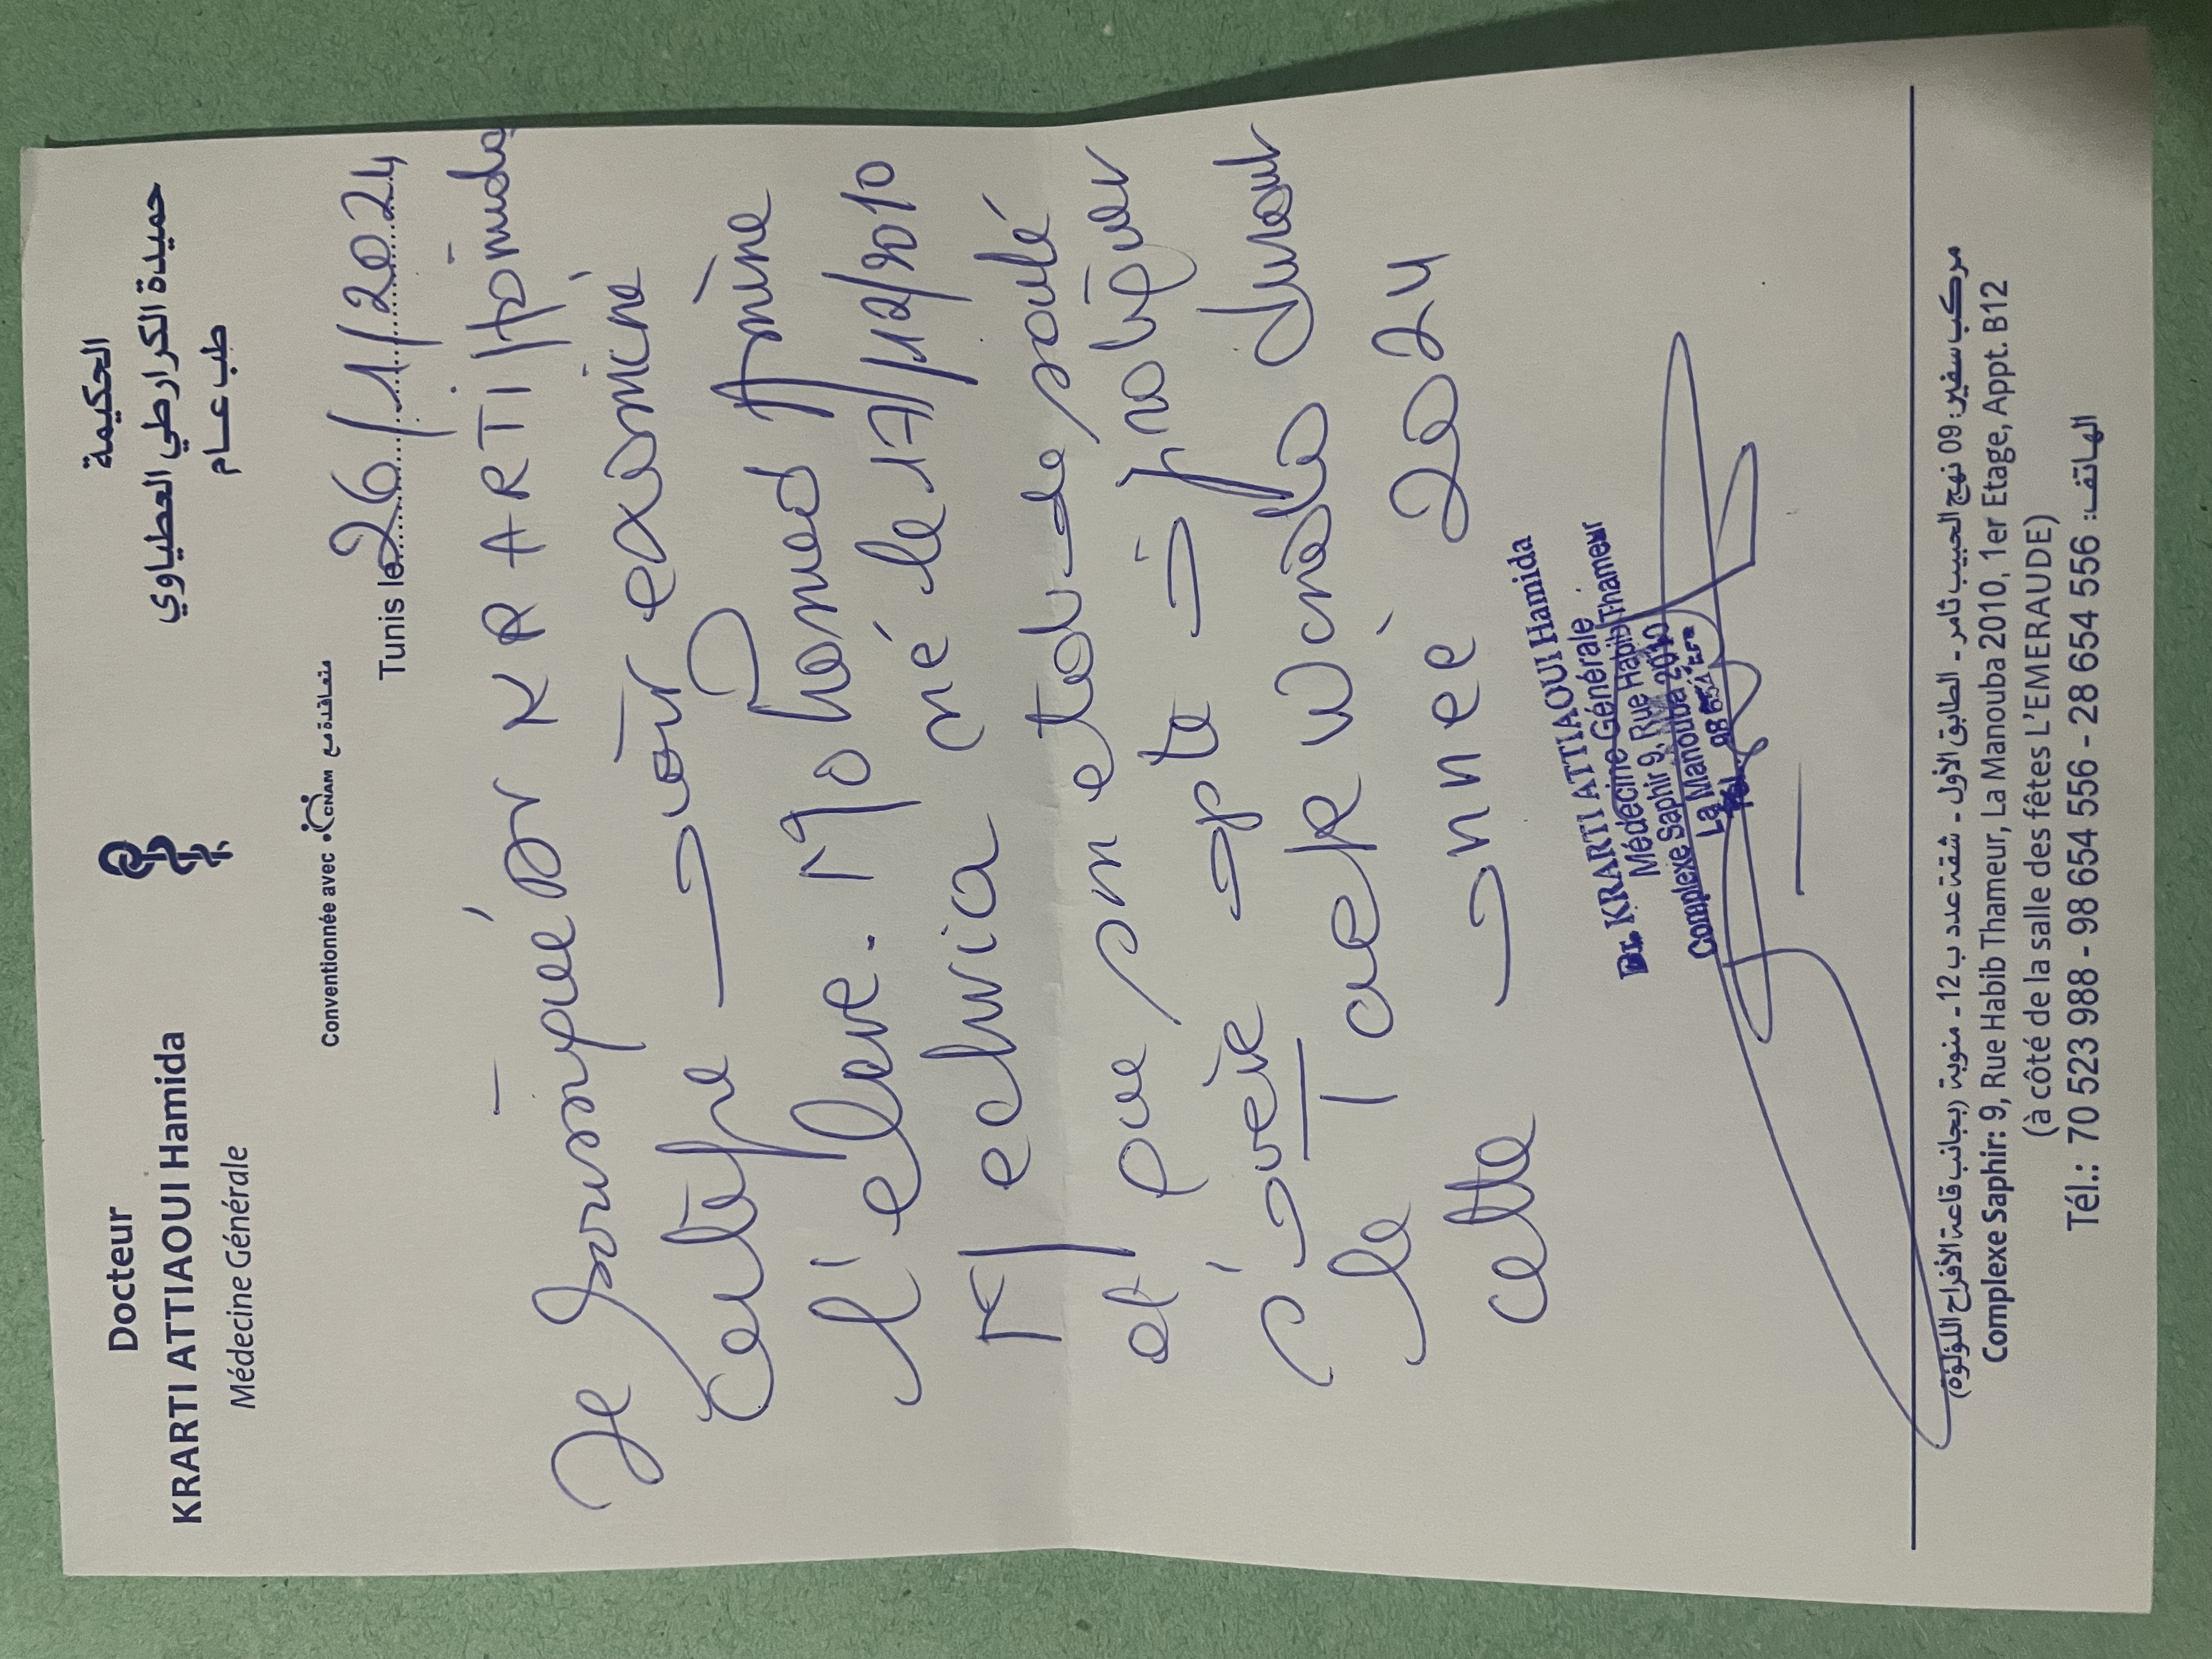 Docteur
KRARTI ATTIAOUI Hamida
Médecine Générale
الحكيمة
حميدة الكرارطي العطياوي
طب عــام
Conventionnée avec CNAM متعاقدة مع
Tunis le 26/1/2024
Je soussignée Dr KRARTI Hamida
Certifie avoir examiné
l'élève. Mohamed Amine
Mechria né le 17/12/2010
et que son état de santé
s'avère apte à pratiquer
le Taekwondo durant
cette année 2024
Dr. KRARTI ATTIAOUI Hamida
Médecine Générale
Complexe Saphir 9, Rue Habib Thameur
La Manouba 2010
مركب سفير: 09 نهج الحبيب ثامر - الطابق الأول - شقة عدد ب 12 - منوبة (بجانب قاعة الأفراح اللؤلؤة)
Complexe Saphir: 9, Rue Habib Thameur, La Manouba 2010, 1er Etage, Appt. B12
(à côté de la salle des fêtes L'EMERAUDE)
Tél.: 70 523 988 - 98 654 556 - 28 654 556 :الهاتف